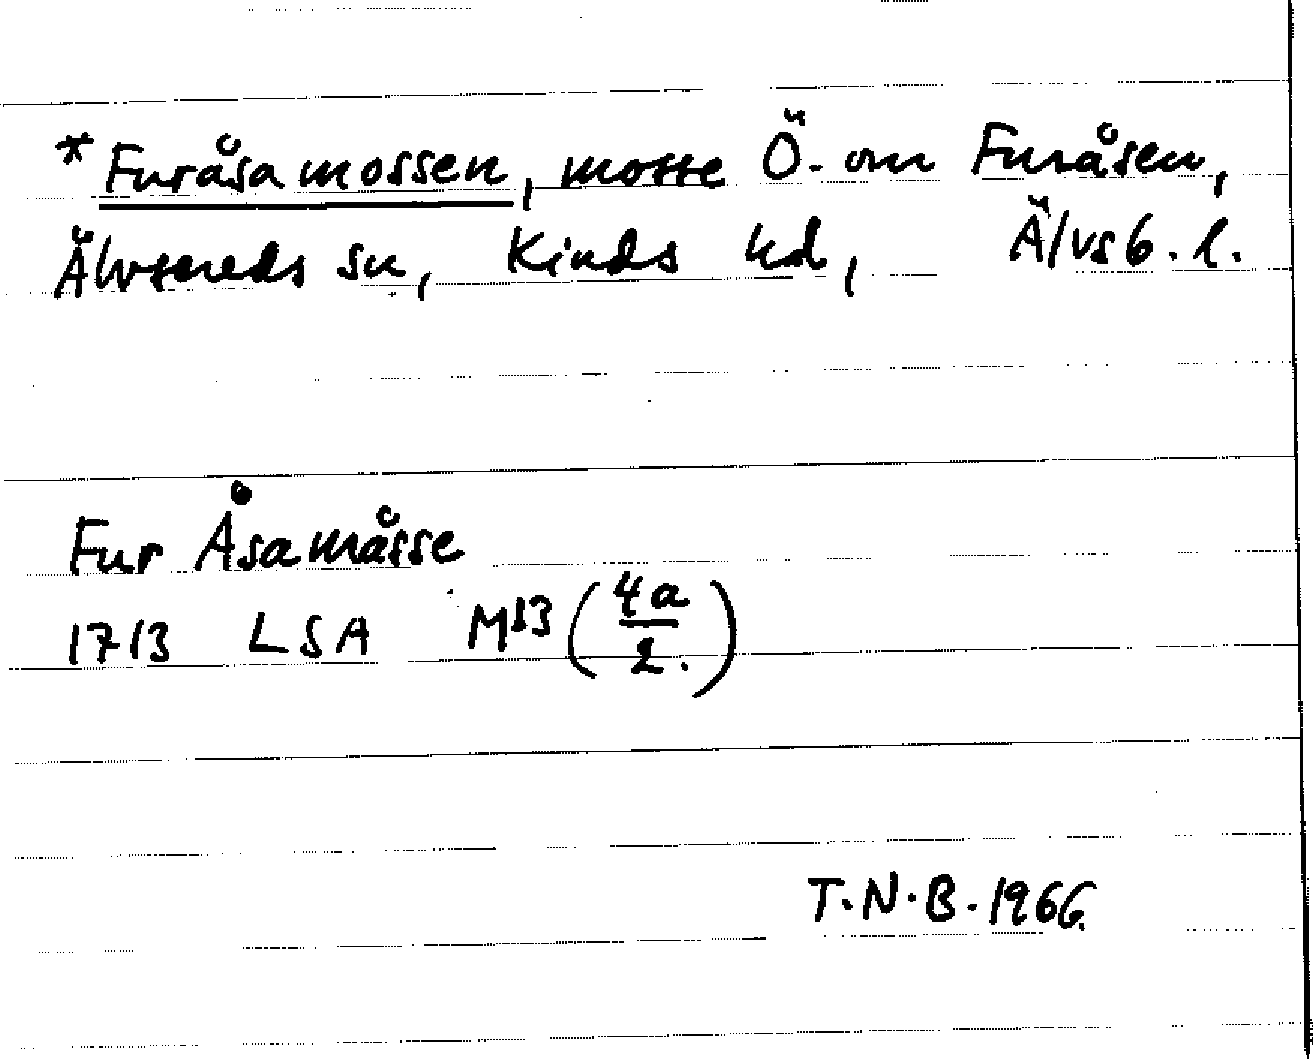 *Furåsamossen, mosse Ö. om Furåsen,
Älvsereds sn, Kinds hd, Älvsb. l.
Fur Åsamåsse
1713 LSA M13 (4a/2.)
T.N.B. 1966.